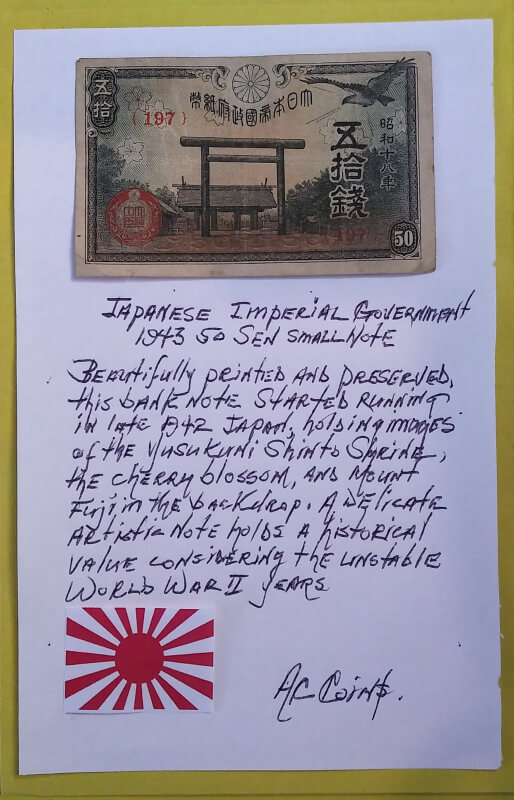 五拾
大日本帝國政府紙幣
{197}
昭和十八年
五拾錢
197
50
JAPANESE IMPERIAL GOVERNMENT
1943 50 SEN SMALL NOTE
BEAUTIFULLY PRINTED AND PRESERVED,
this BANK NOTE STARTED RUNNING
IN LATE 1942 JAPAN, holding IMAGES
of the YUSUKUNI SHINTO SHRINE,
the CHERRY blossom, AND MOUNT
FUJI IN the backdrop. A DELICATE
ARTISTIC NOTE holds A historical
VALUE CONSIDERING the UNSTABLE
WORLD WAR II YEARS
AC COINS.